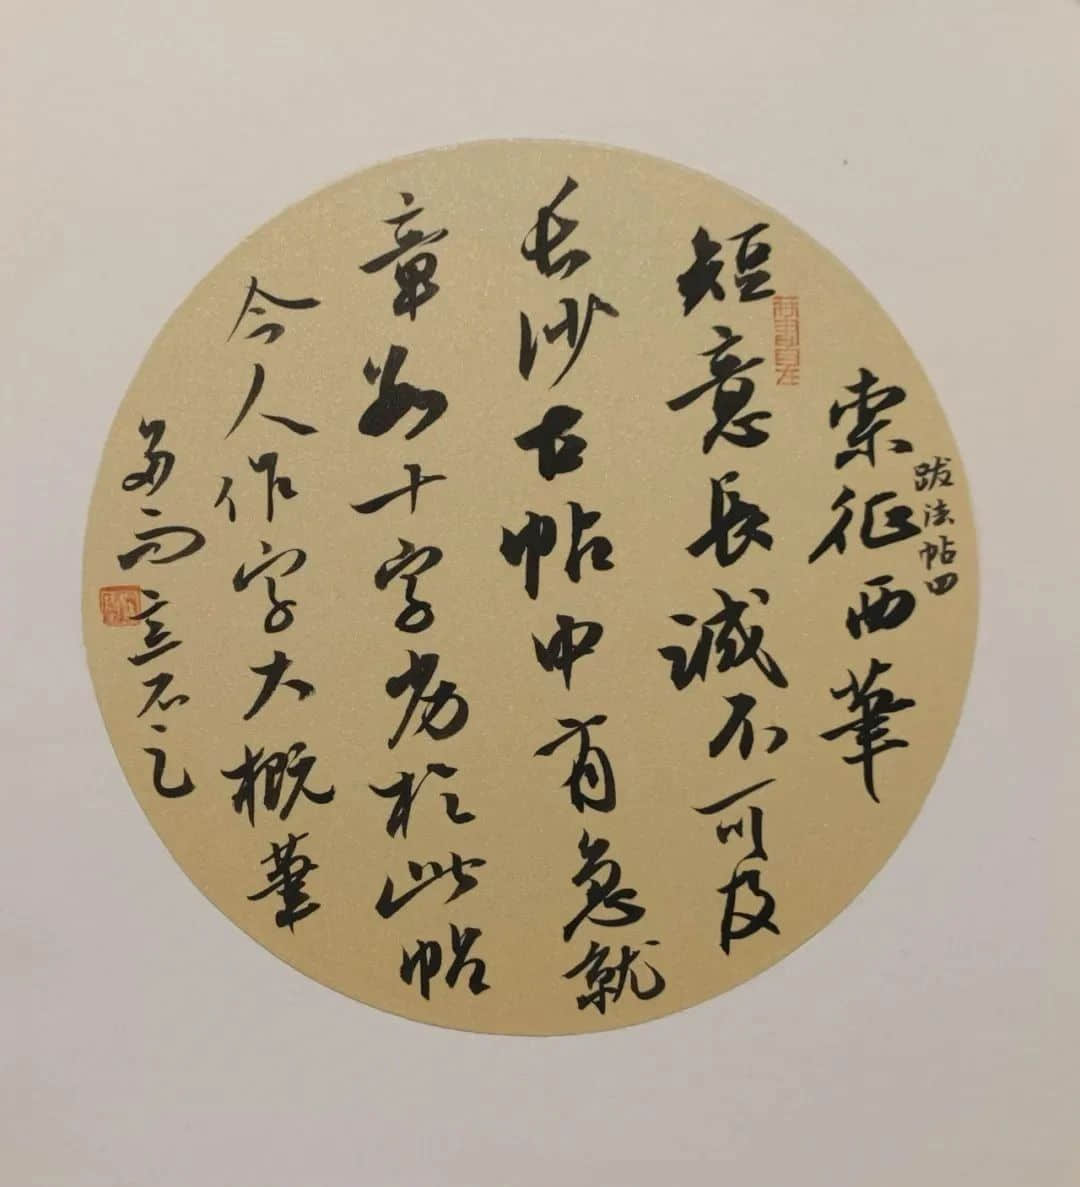 跋法帖四
索征西筆
短意長誠不可及
长沙古帖中有急就
章数十字劣於此帖
今人作字大概筆
多而意不足